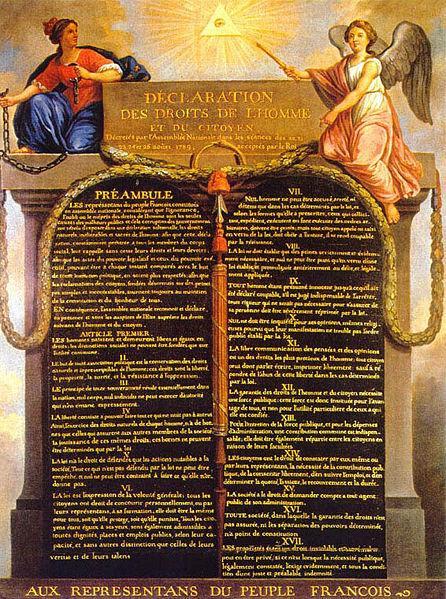 DÉCLARATION
DES DROITS DE L'HOMME
ET DU CITOYEN,
Décrétés par l'Assemblée Nationale dans les séances des 20, 21,
23, 24 et 26 août 1789, acceptés par le Roi
PRÉAMBULE
LES représentans du peuple François, constitués
en assemblée nationale, considérant que l'ignorance,
l'oubli ou le mépris des droits de l'homme sont les seules
causes des malheurs publics et de la corruption des gouvernemens
ont résolu d'exposer dans une déclaration solemnelle, les droits
naturels, inaliénables et sacrés de l'homme; afin que cette décla-
ration, constamment présente à tous les membres du corps
social, leur rappelle sans cesse leurs droits et leurs devoirs;
afin que les actes du pouvoir législatif et ceux du pouvoir exé-
cutif, pouvant être à chaque instant comparés avec le but
de toute institution politique, en soient plus respectés; afin que
les réclamations des citoyens, fondées désormais sur des princi-
pes simples et incontestables, tournent toujours au maintien
de la constitution et du bonheur de tous.
EN conséquence, l'assemblée nationale reconnoit et déclare,
en présence et sous les auspices de l'Etre suprême les droits
suivans de l'homme et du citoyen.
ARTICLE PREMIER.
LES hommes naissent et demeurent libres et égaux en
droits, les distinctions sociales ne peuvent être fondées que sur
l'utilité commune.
II.
LE but de toute association politique est la conservation des droits
naturels et imprescriptibles de l'homme; ces droits sont la liberté,
la propriété, la sureté, et la résistance à l'oppression.
III.
LE principe de toute souveraineté réside essentiellement dans
la nation, nul corps, nul individu ne peut exercer d'autorité
qui n'en émane expressement.
IV.
LA liberté consiste à pouvoir faire tout ce qui ne nuit pas à autrui
Ainsi, l'exercice des droits naturels de chaque homme, n'a de bor-
nes que celles qui assurent aux autres membres de la société
la jouissance de ces mêmes droits; ces bornes ne peuvent
être déterminées que par la loi
V.
LA loi n'a le droit de défendre que les actions nuisibles à la
société. Tout ce qui n'est pas défendu par la loi ne peut être
empêché, et nul ne peut être contraint à faire ce qu'elle n'or-
donne pas.
VI.
LA loi est l'expression de la volonté générale; tous les
citoyens ont droit de concourir personnellement, ou par
leurs représentans, à sa formation; elle doit être la même
pour tous, soit qu'elle protege, soit qu'elle punisse. Tous les ci-
toyens étant égaux à ses yeux, sont également admissibles à
toutes dignités, places et emplois publics, selon leur ca-
pacité, et sans autres distinction que celles de leurs
vertus et de leurs talens
VII.
NUL homme ne peut être accusé, arrêté, ni
détenu que dans les cas déterminés par la loi, et
selon les formes qu'elle a prescrites, ceux qui sollici-
tent, expédient, exécutent ou font exécuter des ordres ar-
bitraires, doivent être punis; mais tout citoyen appelé ou saisi
en vertu de la loi, doit obéir à l'instant, il se rend coupable
par la résistance.
VIII.
LA loi ne doit établir que des peines strictement et évidemment
nécessaires, et nul ne peut être puni qu'en vertu d'une
loi établie et promulguée antérieurement au délit, et légale-
ment appliquée.
IX.
TOUT homme étant présumé innocent jusqu'à ce qu'il ait
été déclaré coupable, s'il est jugé indispensable de l'arrêter,
toute rigueur qui ne seroit pas nécessaire pour s'assurer de
sa personne doit être sévèrement réprimée par la loi.
X.
NUL ne doit être inquiété pour ses opinions, mêmes religi-
euses pourvu que leur manifestation ne trouble pas l'ordre
public établi par la loi.
XI.
LA libre communication des pensées et des opinions
est un des droits les plus précieux de l'homme; tout citoyen
peut donc parler, écrire, imprimer librement, sauf à ré-
pondre de l'abus de cette liberté dans les cas déterminés
par la loi.
XII.
LA garantie des droits de l'homme et du citoyen nécessite
une force publique; cette force est donc instituée pour l'avan-
tage de tous, et non pour l'utilité particuliere de ceux à qui
elle est confiée.
XIII.
POUR l'entretien de la force publique, et pour les dépenses
d'administration, une contribution commune est indispen-
sable; elle doit être également répartie entre les citoyens en
raison de leurs facultés.
XIV.
LES citoyens ont le droit de constater par eux même ou
par leurs représentans, la nécessité de la contribution pub-
lique, de la consentir librement, d'en suivre l'emploi, et d'en
déterminer la quotité, l'assiette, le recouvrement et la durée.
XV.
LA société a le droit de demander compte à tout agent
public de son administration.
XVI.
TOUTE société, dans laquelle la garantie des droits n'est
pas assurée, ni les séparation des pouvoirs déterminée,
n'a point de constitution
XVII.
LES propriétés étant un droit inviolable et sacré, nul ne
peut en être privé, si ce n'est lorsque la nécessité publique,
légalement constatée, l'exige évidemment, et sous la condi-
tion d'une juste et préalable indemnité.
AUX REPRESENTANS DU PEUPLE FRANCOIS